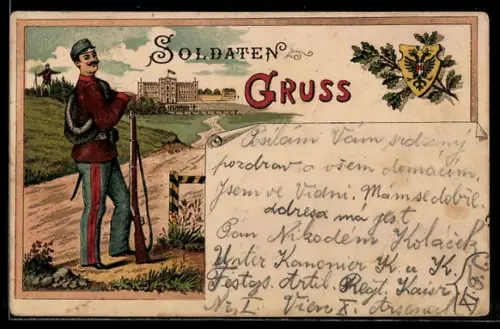 SOLDATEN
GRUSS
Posílám Vám srdečný
pozdrav a všem domácím.
Jsem ve Vídni. Mám se dobře.
adresa má jest
Pan Nikodém Koláček
Unter Kanonier K. u. K.
Festgs. Artil. Regt. Kaiser
Nr. I. Vien X. Arsenal